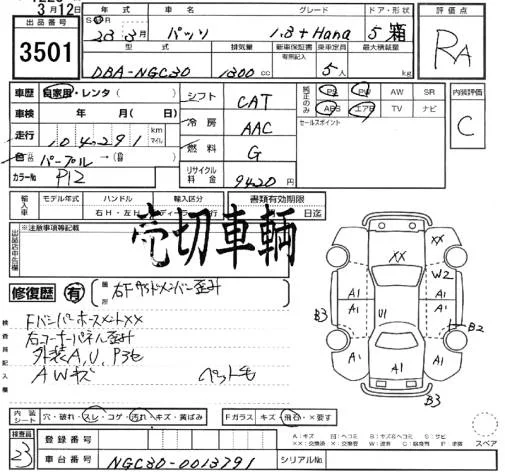 3月12日
出品番号
3501
年式 車名 グレード ドア・形状 評価点
23年3月 パッソ 1.3+Hana 5 箱
RA
型式 排気量 新車保証書 乗車定員 最大積載量
有際記入
DBA-NGC30 1300cc 5人 kg
車歴 自家用・レンタ( )
車検 年 月( 日)
走行 104,291 km マイル
色 パープル→( )
カラーNo P12
シフト CAT
冷房 AAC
燃料 G
リサイクル料金 9420円
純正のみ PS PW AW SR
ABS エアB TV ナビ
セールスポイント
内装評価
C
輸入車 モデル年式 ハンドル 輸入区分 書類有効期限
右H・左H ディーラー 日迄
※注意事項等記載
売切車輌
修復歴 有
箇所 右Fサイドメンバー歪み
検査員記入欄
FバンパーホースメントXX
右コーナーパネル歪み
外装A,U,P3色
AWキズ ペット毛
XX XX W2 A1 A1 A1 A1 U1 B3 B2 A1 A1 B3
内装シート 穴・破れ・スレ・コゲ・汚れ・キズ・黄ばみ Fガラス キズ・飛石・×要す
検査員
23
登録番号
車台番号 NGC30-0013791 シリアルNo.
スペア